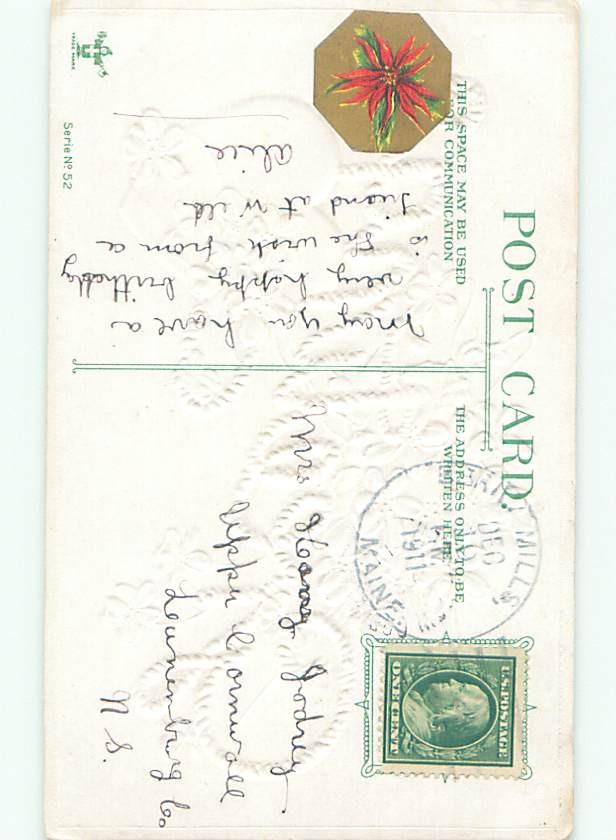 POST CARD.
THIS SPACE MAY BE USED
FOR COMMUNICATION
THE ADDRESS ONLY TO BE
WRITTEN HERE.
May you have a
very happy birthday
is the wish from a
friand at Will
Alice
Mrs Henry Godney
Upper Cornwall
Lunenburg Co
N S.
MILLS,
DEC
1911
MAINE
U.S. POSTAGE
ONE CENT
TRADE MARK
Serie No 52